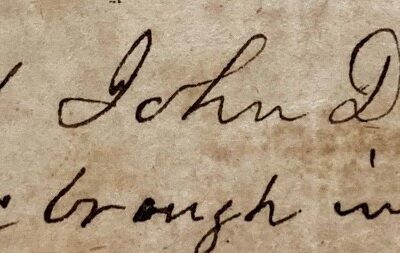 John D
brough in